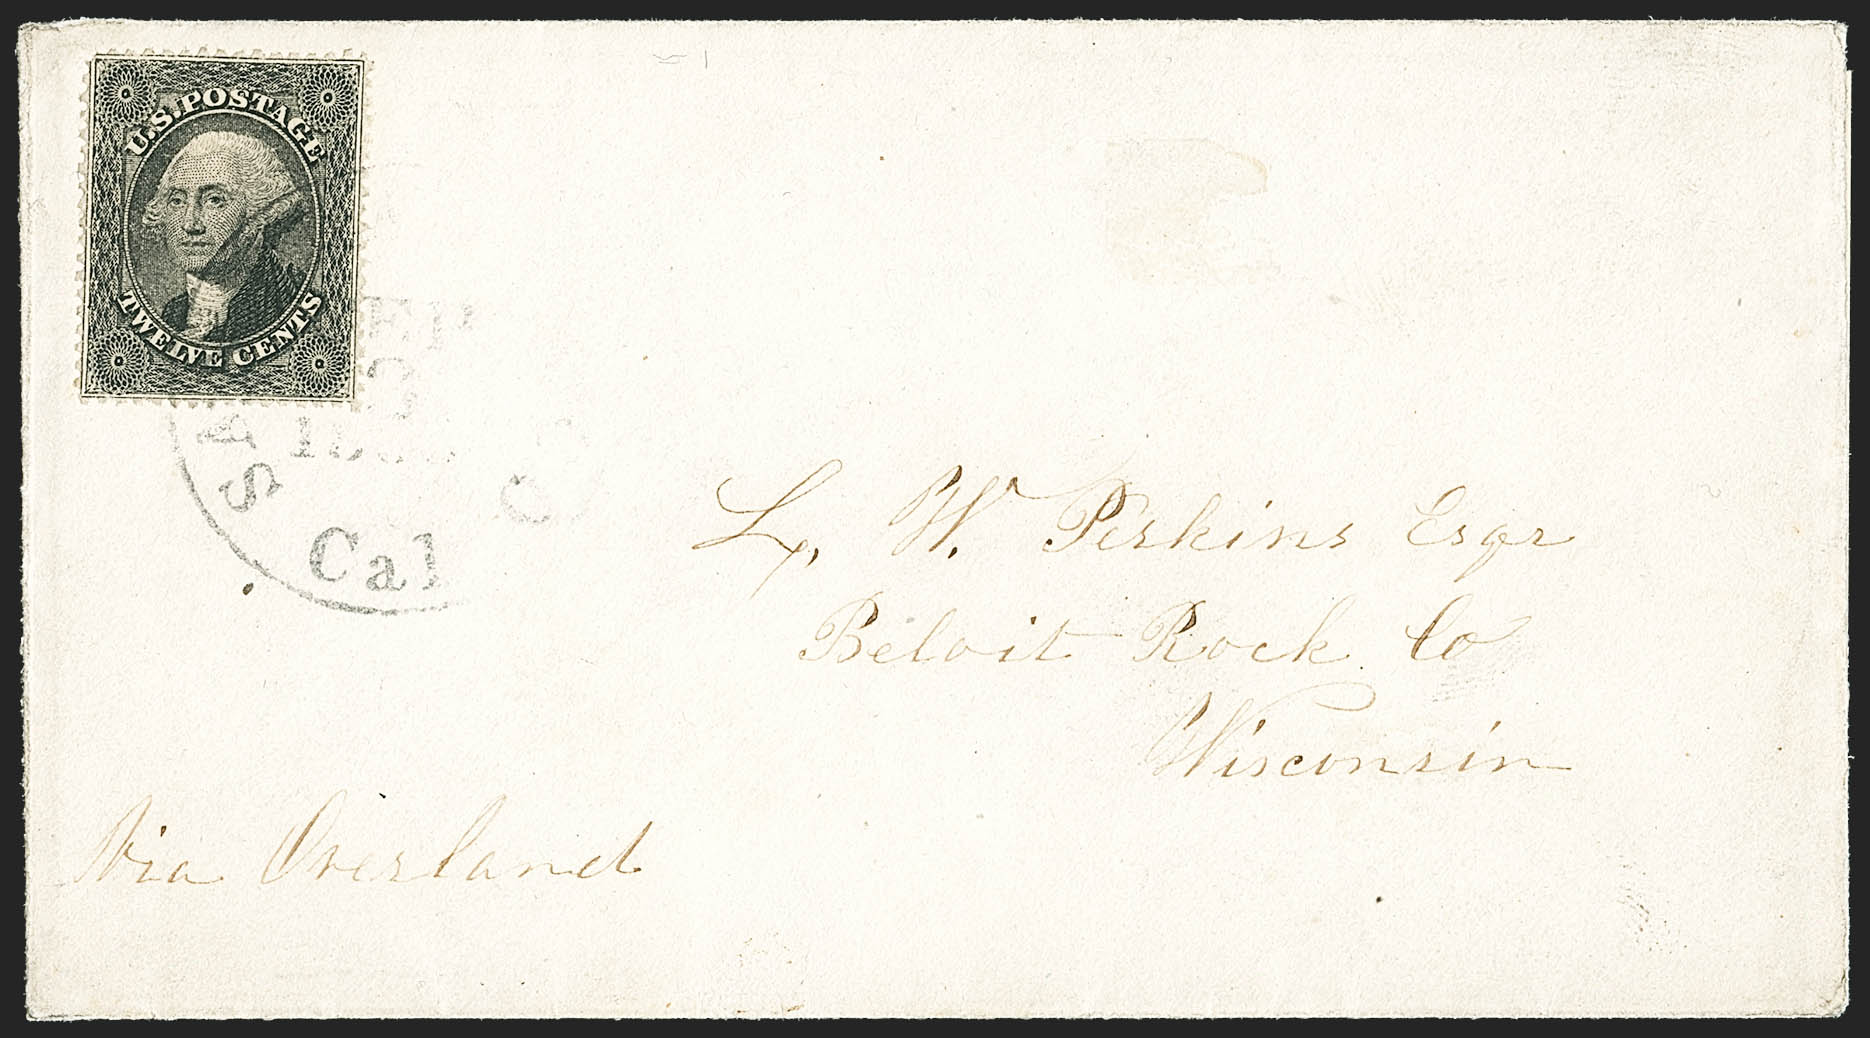 U.S. POSTAGE
TWELVE CENTS
Cal
L. W. Perkins Esqr
Beloit Rock Co
Wisconsin
Via Overland